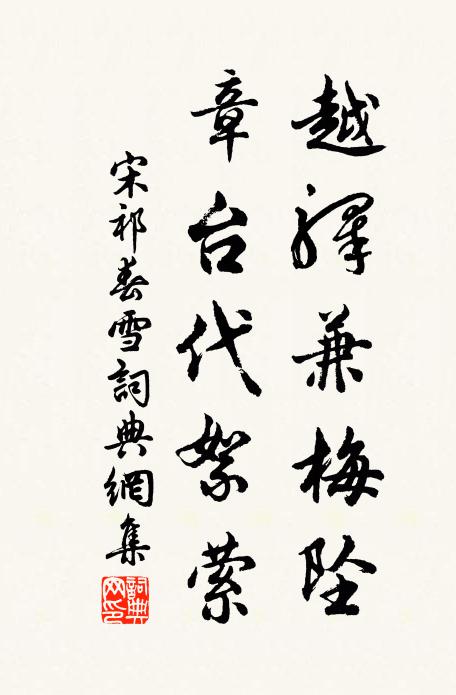 越驛兼梅坠
章台代絮萦
宋祁春雪詞典網集
詞典网印